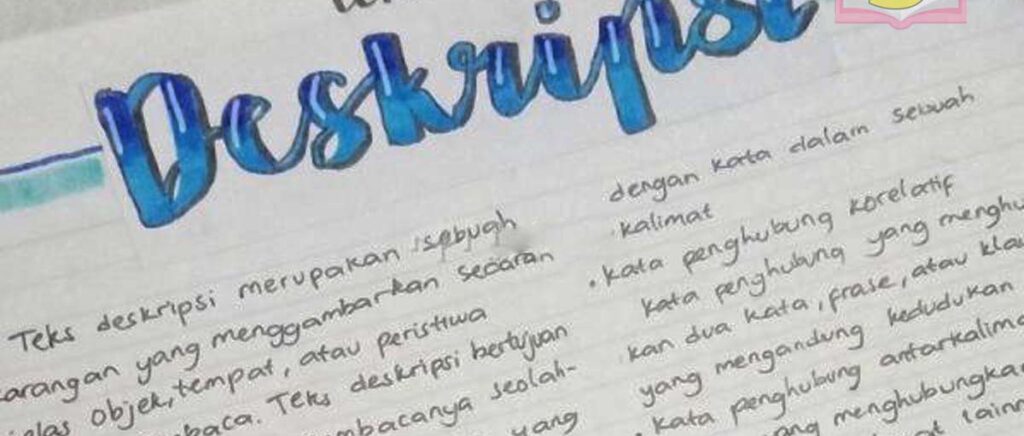 Deskripsi
Teks deskripsi merupakan sebuah
karangan yang menggambarkan secaran
objek, tempat, atau peristiwa
Teks deskripsi bertujuan
seolah-
yang
dengan kata dalam sebuah
kalimat
• kata penghubung korelatif
kata penghubung yang menghu
kan dua kata, frase, atau klau
yang mengandung kedudukan
• kata penghubung antarkalima
menghubungka